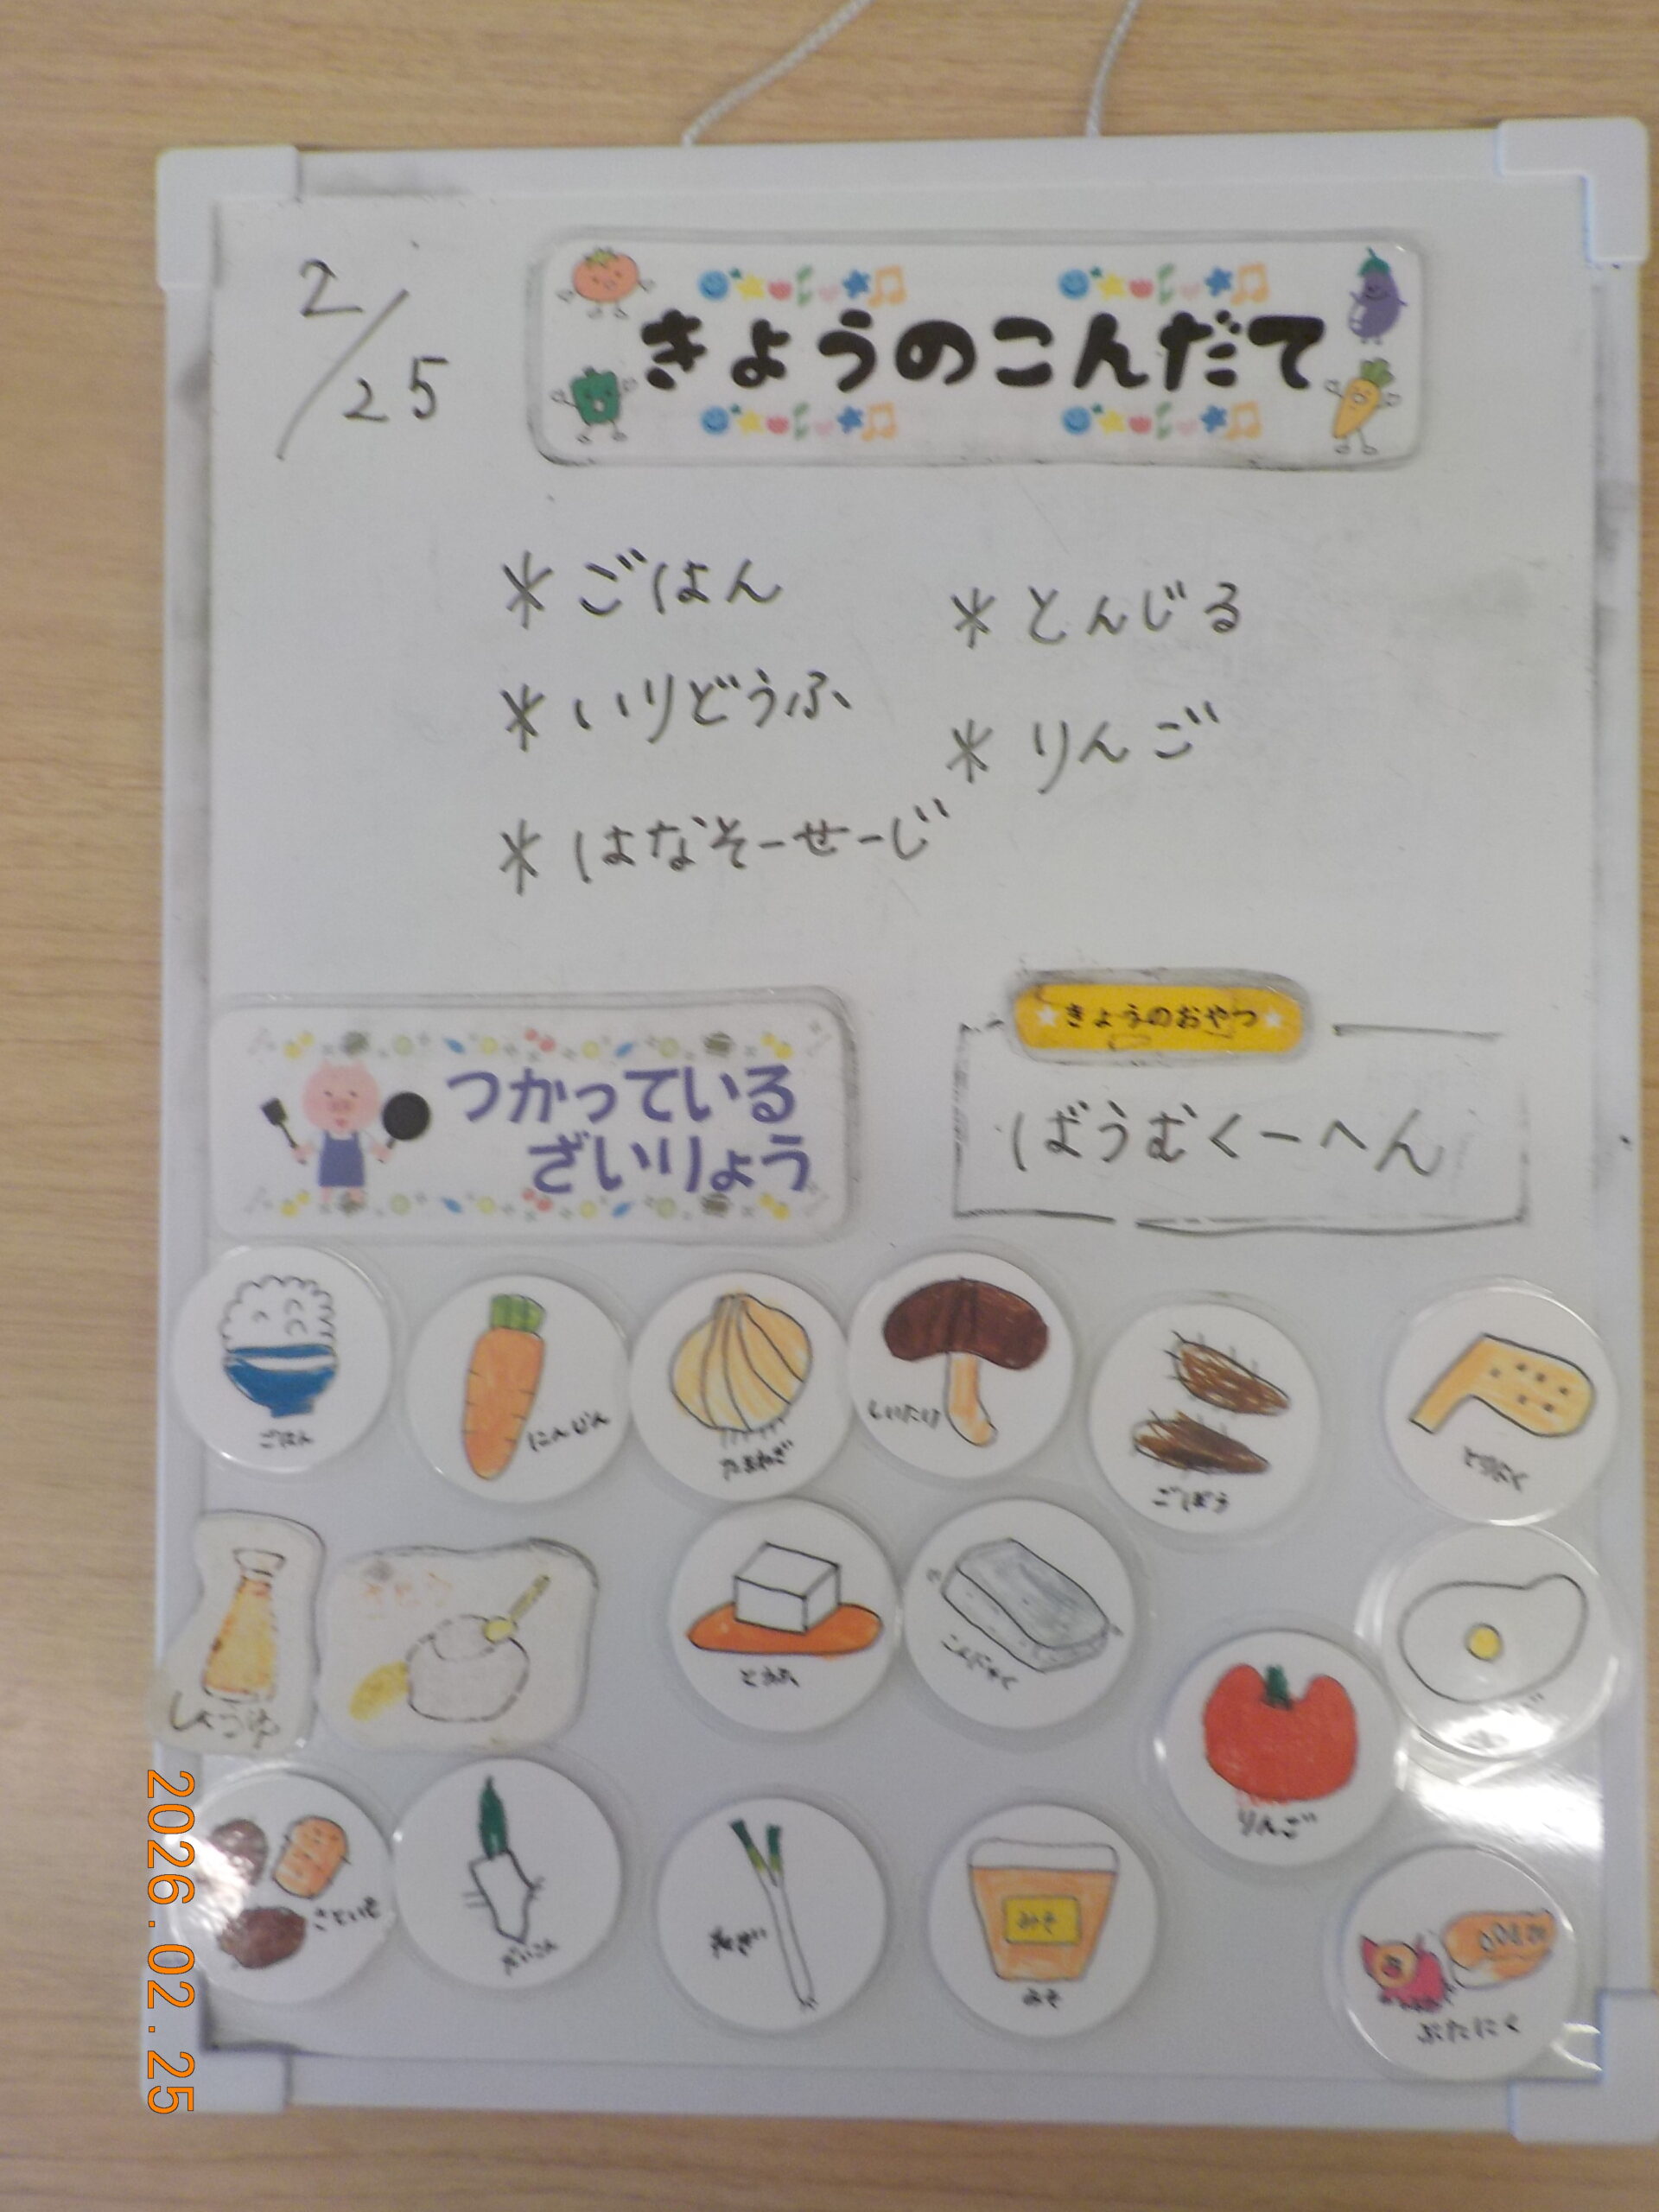 2/25
きょうのこんだて
* ごはん
* いりどうふ
* はなそーせーじ
* とんじる
* りんご
★きょうのおやつ★
ばうむくーへん
つかっている
ざいりょう
ごはん
にんじん
たまねぎ
しいたけ
ごぼう
とりにく
しょうゆ
さとう
とうふ
こんにゃく
りんご
さといも
だいこん
ねぎ
みそ
みそ
ぶたにく
2026.02.25